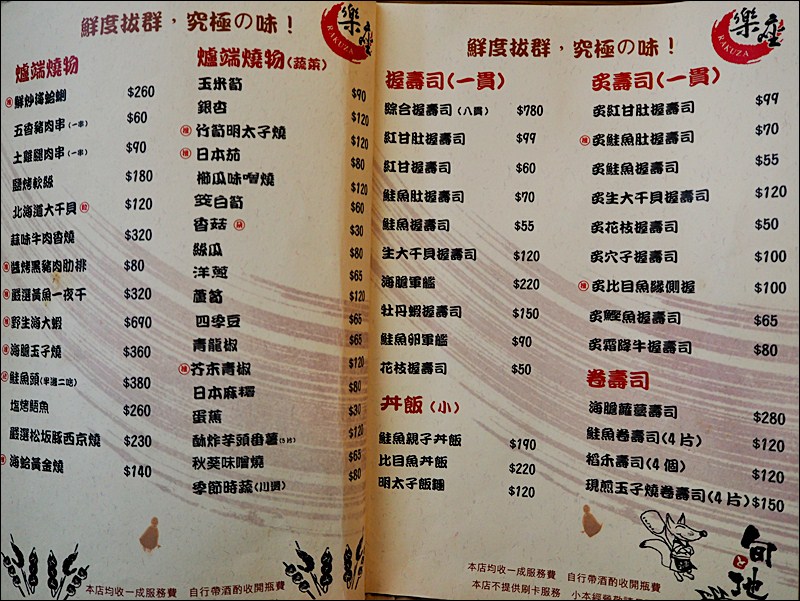 鮮度拔群，究極の味！
樂座
RAKUZA
爐端燒物
鮮炒海蛤蜊 $260
五香豬肉串(一串) $60
土雞腿肉串(一串) $90
鹽烤軟絲 $180
北海道大干貝 $120
蒜味牛肉香燒 $320
醬烤黑豬肉肋排 $80
嚴選黃魚一夜干 $320
野生海大蝦 $690
海膽玉子燒 $360
鮭魚頭(半邊二吃) $380
塩烤鯖魚 $260
嚴選松坂豚西京燒 $230
海鮮黃金燒 $140
爐端燒物(蔬菜)
玉米筍 $90
銀杏 $120
竹筍明太子燒 $120
日本茄 $80
櫛瓜味噌燒 $120
筊白筍 $60
香菇 $30
絲瓜 $80
洋蔥 $65
蘆筍 $120
四季豆 $65
青龍椒 $65
芥末青椒 $120
日本麻糬 $80
蛋蕉 $30
酥炸芋頭番薯 $120
秋葵味噌燒 $65
季節時蔬 $80
本店均收一成服務費 自行帶酒酌收開瓶費
鮮度拔群，究極の味！
樂座
RAKUZA
握壽司(一貫)
綜合握壽司(八貫) $780
紅甘肚握壽司 $99
紅甘握壽司 $60
鮭魚肚握壽司 $70
鮭魚握壽司 $55
生大干貝握壽司 $120
海膽軍艦 $220
牡丹蝦握壽司 $150
鮭魚卵軍艦 $90
花枝握壽司 $50
丼飯(小)
鮭魚親子丼飯 $190
比目魚丼飯 $220
明太子飯糰 $120
炙壽司(一貫)
炙紅甘肚握壽司 $99
炙鮭魚肚握壽司 $70
炙鮭魚握壽司 $55
炙生大干貝握壽司 $120
炙花枝握壽司 $50
炙穴子握壽司 $100
炙比目魚緣側握 $100
炙鰹魚握壽司 $65
炙霜降牛握壽司 $80
卷壽司
海膽蘿蔓壽司 $280
鮭魚卷壽司(4片) $120
稻禾壽司(4個) $120
現煎玉子燒卷壽司(4片) $150
旬と地
本店均收一成服務費 自行帶酒酌收開瓶費
本店不提供刷卡服務 小本經營敬請